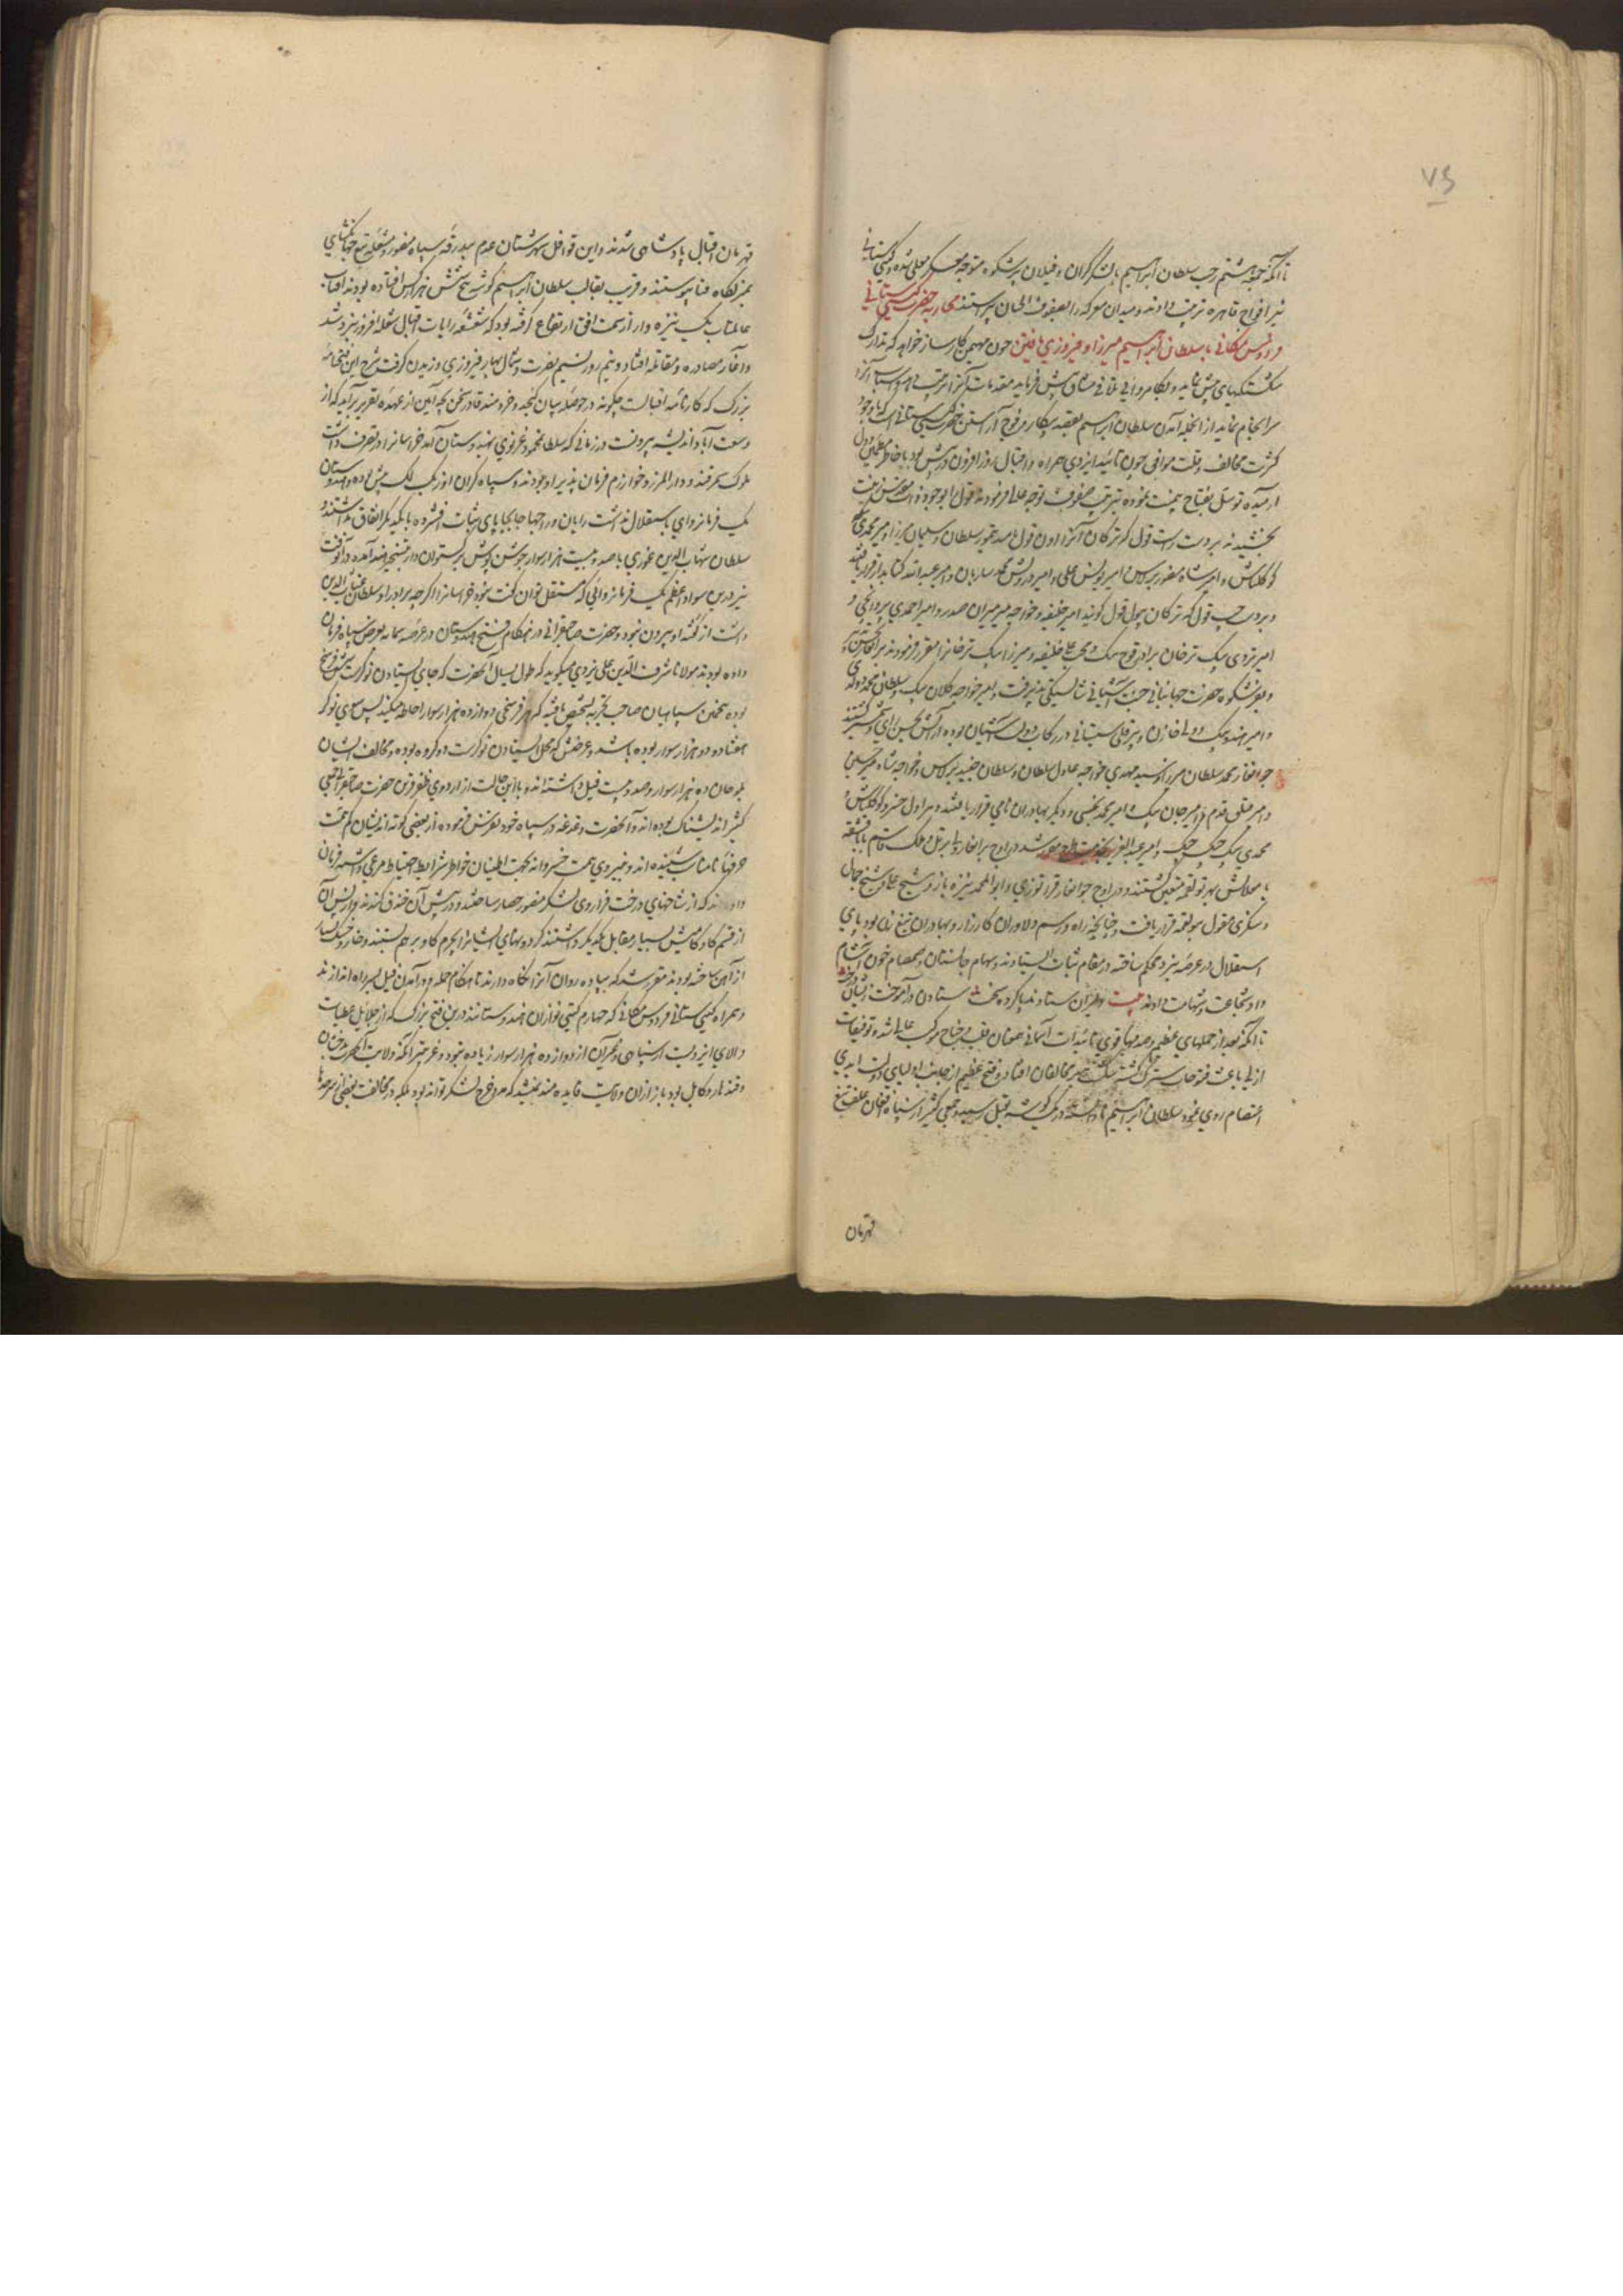 ۷۵
تا آنکه جمعه هشتم رجب سلطان ابراهیم با لشکر گران و فیلان پرشکوه متوجه معسکر معلی شده و گیتی ستانی
نیز افواج قاهره ترتیب داده در میدان معرکه را بصفوف
فردوس مکانی با سلطان ابراهیم میرزا و فیروزی یافتن چون مهیمن کارساز خواهد که تدارک
شکستگیهای پیش نماید و بکامروایی تلافی مشاق پیش فرماید مقدمات آنرا ترتیب دهد و اسباب آنرا
سرانجام نماید از آنجمله آمدن سلطان ابراهیم بقصد پیکار و فوج آراستن حضرت گیتی ستانی است که باوجود
کثرت مخالف و قلت موافق چون تائید ایزدی همراه و اقبال روزافزون در پیش بود با خاطر مطمئن و دل
آرمیده توسل بفتاح بیمنت نموده بترتیب صفوف توجه عالی فرمودند قول
بخشیدند بر دست راست قول که ترکان آنرا اون قول نامند چین تیمور سلطان و سلیمان میرزا و امیر محمدی
کوکلتاش و امیر شاه منصور برلاس و امیر یونس علی و امیر درویش محمد ساربان و امیر عبدالله کتابدار قرار یافتند
و بر دست چپ قول که ترکان سول قول گویند امیر خلیفه و خواجه میر میران صدر و امیر احمدی پروانچی و
امیر تردی بیک ترخان برادر قوج بیک و محب علی خلیفه و میرزا بیک ترخان را مقرر فرمودند
و بفر شکوه حضرت جهانبانی جنت آشیانی شایستگی پذیرفت و امیر خواجه کلان بیک و سلطان محمد دولدی
و امیر هندو بیک و ولی خازن و پیر قلی سیستانی در رکاب دولت آشیان بوده
جوانغار محمد سلطان میرزا و سید مهدی خواجه و عادل سلطان و سلطان جنید برلاس و خواجه شاه میر حسین
و امیر قتلق قدم و امیر جان بیک و امیر محمد بخشی و دیگر بهادران نامی قرار یافتند و هراول خسرو کوکلتاش و
محمدی بیک جنگ جنگ و امیر عبدالعزیز در اوج برانغار ولی قزل و ملک قاسم بابا قشقه
با مغولانش بهر تولقمه متعین گشتند و در اوج جوانغار قراقوزی و ابوالمحمد نیزه باز و شیخ علی و شیخ جمال
و تنگری قلی مغول بتولقمه قرار یافت و چنانچه راه و رسم دلاوران کارزار و بهادران تیغ زن بود پای
استقلال در عرصه نبرد محکم ساخته در مقام ثبات ایستادند و بسهام جانستان و صمصام خون آشام
داد شجاعت و شهامت دادند بیت دلیران ستاده بپا کرده سخت ستادن در آموخت زیشان درخت
تا آنکه بعد از حملهای عظیم و صدمهای قوی تائیدات آسمانی همعنان قلب و جناح موکب عالی شد و توفیقات
ازلی باعث فتوحات سترگ گشته شکست بر مخالفان افتاد و فتح عظیم از جانب اولیای دولت ابدی
اعتصام روی نمود سلطان ابراهیم نادانسته در یک گوشه بقتل رسید و جمعی کثیر از سپاه افغان علف تیغ
قهرمان
قهرمان اقبال پادشاهی شدند و این قوافل شهرستان عدم ببدرقه سپاه منصور و مشعله تیغ جهانگشای
بمنزلگاه فنا پیوستند و قریب بقالب سلطان ابراهیم گوشه پنج شش هزار کس افتاده بودند آفتاب
عالمتاب یک نیزه وار از سمت افق ارتفاع گرفته بود که شعشعه رایات اقبال شعله افروز نبرد شد
و آغاز مصادره و مقاتله افتاد و نیم روز نسیم نصرت و شمال بهار فیروزی وزیدن گرفت شرح این فتح نامه
بزرگ که کارنامه اقبالست چگونه در حوصله بیان گنجد و خردمند قادر سخن بچه آیین از عهده تقریر برآید که از
وسعت آباد اندیشه بیرونست در زمانی که سلطان محمود غزنوی بهندوستان آمد خراسان را در تصرف داشت
ملوک سمرقند و دارالمرز و خوارزم فرمان پذیر او بودند و سپاه گران او از یک لک بیش بود و هندوستان
یک فرمانروای باستقلال نداشت رایان و راجها جابجا پای ثبات افشرده با یکدیگر اتفاق نداشتند و
سلطان شهاب الدین غوری با صد و بیست هزار سوار جوشن پوش برگستوان دار بتسخیر هند آمد و در آنوقت
نیز درین سواد اعظم یک فرمانروائی که مستقل توان گفت نبود خراسان را اگرچه برادر او سلطان غیاث الدین
داشت از گفته او بیرون نبود و حضرت صاحبقرانی در هنگام فتح هندوستان در عرصه سمانه بعرض سپاه فرمان
داده بودند مولانا شرف الدین علی یزدی میگوید که طول یسال آنحضرت که جای ایستادن نوکرست شش فرسخ
بوده تخمین سپاهیان صاحب تجربه بتشخص یافته که هر فرسخی دوازده هزار سوار احاطه میکند پس سوای نوکر
هفتاد و دو هزار سوار بوده باشد و عرضش که محل ایستادن نوکرست دو کروه بوده و مخالف ایشان
ملو خان ده هزار سوار و صد و بیست فیل داشته اند و با این حالت از اردوی ظفر قرین حضرت صاحبقرانی جمعی
کثیر اندیشناک بوده اند و آنحضرت دغدغه در سپاه خود تفرس فرموده از بعضی کوته اندیشان کم همت
حرفهای نامناسب شنیده اند و به نیروی همت خسروانه بجهت اطمینان خواطر شرایط احتیاط مرعی داشته فرمان
دادند که از شاخهای درخت فراروی لشکر منصور حصار ساختند و در پیش آن خندق کندند و از پس آن
از قسم گاو و گامیش بسیار مقابل یکدیگر داشتند گردنهای ایشان را بچرم گاو بر هم بستند و خار و خسک بسیار
از آهن ساخته بودند مقرر شد که پیاده روان آنرا نگاه دارند تا هنگام حمله و درآمدن فیل بر سر راه اندازند
و همراه گیتی ستانی فردوس مکانی که چهارم گیتی نوازان هندوستانند درین فتح بزرگ که از جلایل عطیات
والای ایزدیست از سپاهی و غیر آن از دوازده هزار سوار زیاده نبود و غریبتر آنکه ولایت آنحضرت بدخشان
و قندهار و کابل بود باز از آن ولایت فایده مند نمیشد که مد خرج لشکر تواند بود بلکه در مخالفت بعضی از سرحدها